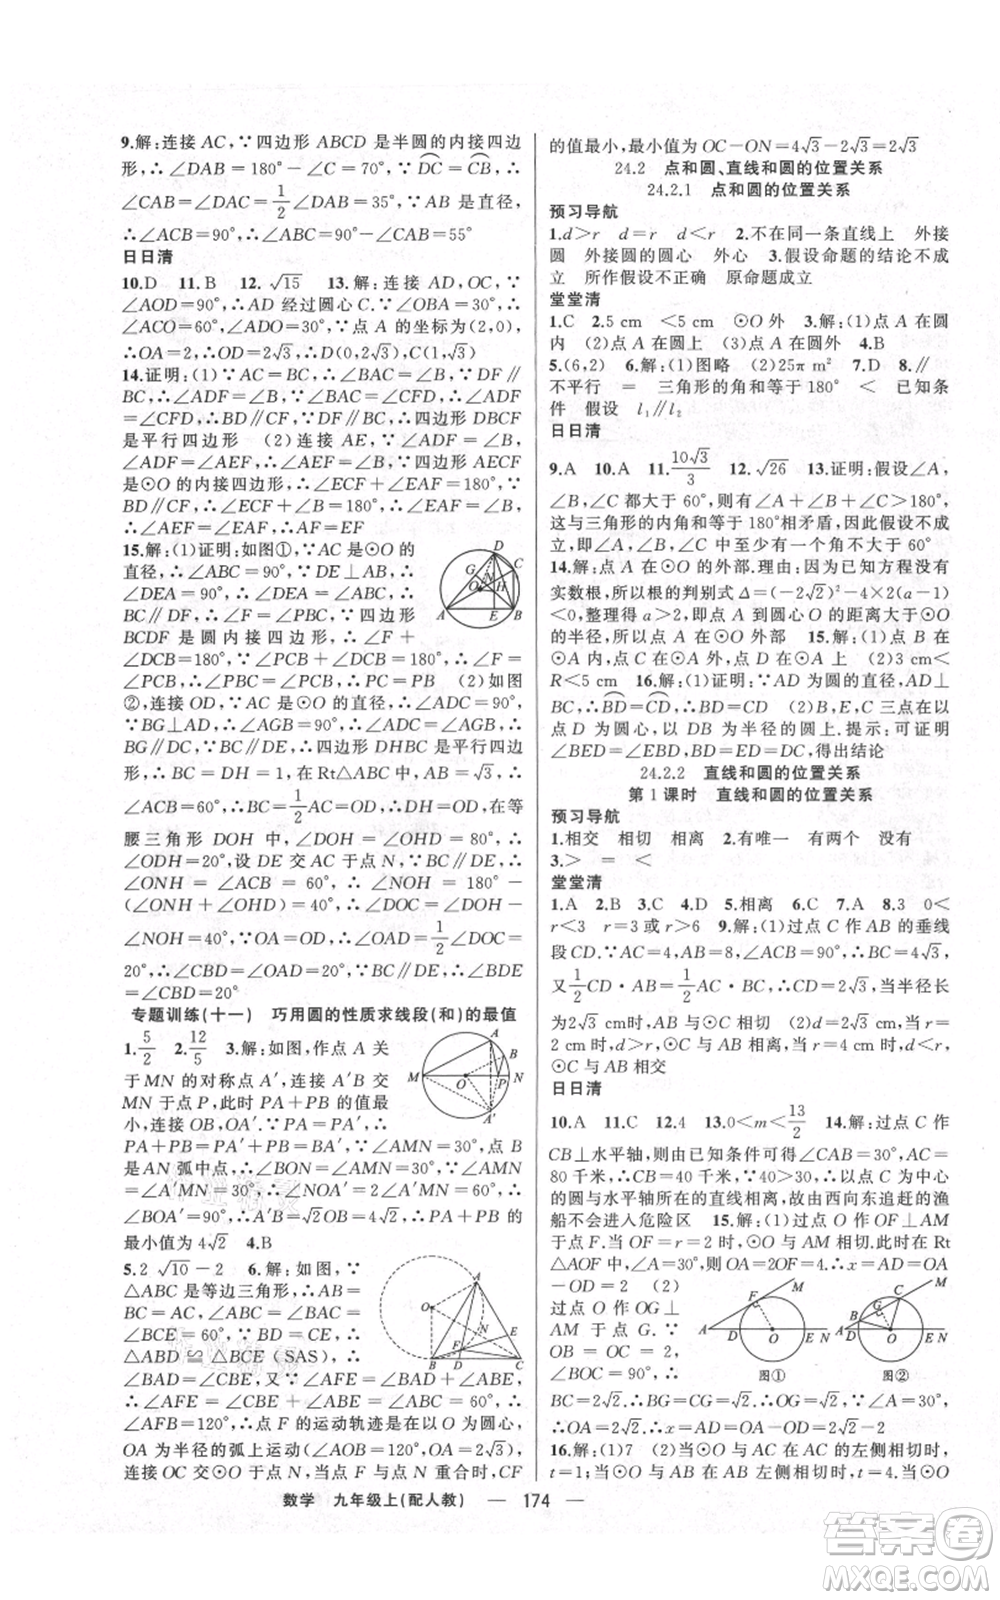 9.解:连接 AC,∵四边形 ABCD 是半圆的内接四边
形,∴∠DAB=180°-∠C=70°,∵DC⌒=CB⌒,∴
∠CAB=∠DAC=1/2∠DAB=35°,∵AB 是直径,
∴∠ACB=90°,∴∠ABC=90°-∠CAB=55°
日日清
10.D 11.B 12.√15 13.解:连接 AD,OC,∵
∠AOD=90°,∴AD 经过圆心 C.∵∠OBA=30°,
∴∠ADO=30°,∵点 A 的坐标为(2,0),
∴OA=2,∴OD=2√3,∴点 D 的坐标为(0,2√3)
14.证明:(1)∵AC=BC,∴∠BAC=∠B,∵DF∥
BC,∴∠ADF=∠B,∵∠BAC=∠CFD,∴∠ADF
=∠CFD,∴BD∥CF,∵DF∥BC,∴四边形 DBCF
是平行四边形 (2)连接 AE,∵∠ADF=∠B,
∠ADF=∠AEF,∴∠AEF=∠B,∵四边形 AECF
是⊙O的内接四边形,∴∠ECF+∠EAF=180°,∵
BD∥CF,∴∠ECF+∠B=180°,∴∠EAF=∠B,
∴∠AEF=∠EAF,∴AF=EF
15.解:(1)证明:如图①,∵AC是⊙O的
直径,∴∠ABC=90°,∵DE⊥AB,∴
∠DEA=90°,∴∠DEA=∠ABC,∴
BC∥DF,∴∠F=∠PBC,∵四边形
BCDF 是圆内接四边形,∴∠F+
∠DCB=180°,∵∠PCB+∠DCB=180°,∴∠F=
∠PCB,∴∠PBC=∠PCB,∴PC=PB (2)如图
②,连接 OD,∵AC是⊙O的直径,∴∠ADC=90°,
∵BG⊥AD,∴∠AGB=90°,∴∠ADC=∠AGB,∴
BG∥DC,∵BC∥DE,∴四边形 DHBC 是平行四边
形,∴BC=DH=1,在 Rt△ABC 中,AB=√3,∴
∠ACB=60°,∴BC=1/2AC=OD,∴DH=OD,在等
腰三角形 DOH 中,∠DOH=∠OHD=80°,∴
∠ODH=20°,设 DE交 AC于点 N,∵BC∥DE,∴
∠ONH=∠ACB=60°,∴∠NOH=180°-
(∠ONH+∠OHD)=40°,∴∠DOC=∠DOH-
∠NOH=40°,∵OA=OD,∴∠OAD=1/2∠DOC=
20°,∴∠CBD=∠OAD=20°,∵BC∥DE,∴∠BDE=
∠CBD=20°
专题训练(十一) 巧用圆的性质求线段(和)的最值
1.5/2 2.12/5 3.解:如图,作点 A 关
于MN 的对称点 A′,连接 A′B 交
MN于点 P,此时 PA+PB 的值最
小,连接 OB,OA′.∵PA=PA′,∴
PA+PB=PA′+PB=A′B,∵∠AMN=30°,点 B
是 AN 弧中点,∴∠BON=∠AMN=30°,∵
∠AMN=30°,∴∠NOA′=2∠AMN=60°,∴
∠BOA′=90°,∴A′B=√2OA′=4√2,∴PA+PB的
最小值为 4√2 4.B
5.2 √10-1 6.解:如图,∵
△ABC是等边三角形,∴AB=
BC=AC,∠ABC=∠BAC=
∠BCE=60°,∵BD=CE,∴
△ABD ≌ △BCE (SAS),∴
∠BAD=∠CBE,又∵∠AFE=∠BAD+∠ABE,
∴∠AFE=∠CBE+∠ABE=∠ABC,∴∠AFE=60°,
∴∠AFB=120°,∴点 F 的运动轨迹是在以O为圆心,
OA为半径的弧上运动(∠AOB=120°,OA=2√3),
连接 OC交⊙O于点 N,当点 F 与点 N 重合时,CF
数学 九年级上(配人教) — 174 —
的值最小,最小值为OC-ON=4√3-2√3=2√3
24.2 点和圆、直线和圆的位置关系
24.2.1 点和圆的位置关系
预习导航
1.d>r d=r d<r 2.不在同一条直线上 外接
圆 外接圆的圆心 外心 3.假设命题的结论不成
立 所作假设不正确 原命题成立
堂堂清
1.C 2.5 cm <5 cm ⊙O外 3.解:(1)点 A 在圆
内 (2)点 A 在圆上 (3)点 A 在圆外 4.B
5.(6,2) 6.解:(1)图略 (2)25π m² 7.D 8.∥
不平行 = 三角形的内角和等于180° < 已知条
件 假设 l₁∥l₂
日日清
9.A 10.A 11.10√3/3 12.√26 13.证明:假设∠A,
∠B,∠C都大于60°,则有∠A+∠B+∠C>180°,
这与三角形的内角和等于180°相矛盾,因此假设不成
立,即∠A,∠B,∠C 中至少有一个不大于60°
14.解:点 A 在⊙O的外部.理由:因为已知方程没有
实数根,所以根的判别式 Δ=(-2√2)²-4×2(a-1)
<0,整理得:a>2,即点 A 到圆心O的距离大于⊙O
的半径,所以点 A 在⊙O外部 15.解:(1)点 B 在
⊙A内部,点 C 在⊙A外部,点 D在⊙A上 (2)3 cm<
R<5 cm 16.解:(1)证明:∵AD为圆的直径,AD⊥
BC,∴BD⌒=CD⌒,∴BD=CD (2)B,E,C三点在以
点 D为圆心,以 DB 为半径的圆上.提示:可证明
∠BED=∠EBD,∴BD=ED=DC,得出结论
24.2.2 直线和圆的位置关系
第1课时 直线和圆的位置关系
预习导航
1.相交 相切 相离 2.有唯一 有两个 没有
3.> = <
堂堂清
1.A 2.B 3.C 4.D 5.相离 6.C 7.A 8.3 0<
r<3 r=3或r>6 9.解:(1)过点 C 作 AB 的垂线
段CD.∵AC=4,AB=8,∠C=90°,∴BC=4√3,
又1/2CD·AB=1/2AC·BC,∴CD=2√3,∴当r=
2√3 cm时,AB 与⊙C 相切 (2)当 d>r,当 r=
2 cm时,d>r,∴⊙C与 AB 相离;当 r=4 cm时,d<
r,∴⊙C与 AB 相交
日日清
10.A 11.C 12.4 13.0<m<13/2 14.解:过点 C作
CB⊥水平轴,由已知条件可得∠CAB=30°,∵CA=
80千米,∴CB=40千米,∵40>30,∴以点C为中心
的圆与水平轴所在的直线相离,故由西向东追赶的渔
船不会进入危险区 15.解:(1)过点 O作OF⊥AM
于点 F,当OF=r=2 时,⊙O与 AM 相切,此时在 Rt
△AOF 中,∠A=30°,故OA=2OF=4,∴x=AD=OA
-OD=2 (2)
过点O作OG⊥
AM 于点 G.∵
OB=OC=2,
∠BOC=90°,∴
图① 图②
BC=2√2,∵OG⊥BC,∴BG=CG=√2,∴OG=√2,∵
∠A=30°,∴OA=2√2,∴x=AD=OA-OD=2√2-2
16.解:(1)7 (2)当⊙O在 AC 的左侧相切时,
t=1;当⊙O与 AC在 AC的右侧相切时,t=4.当⊙O